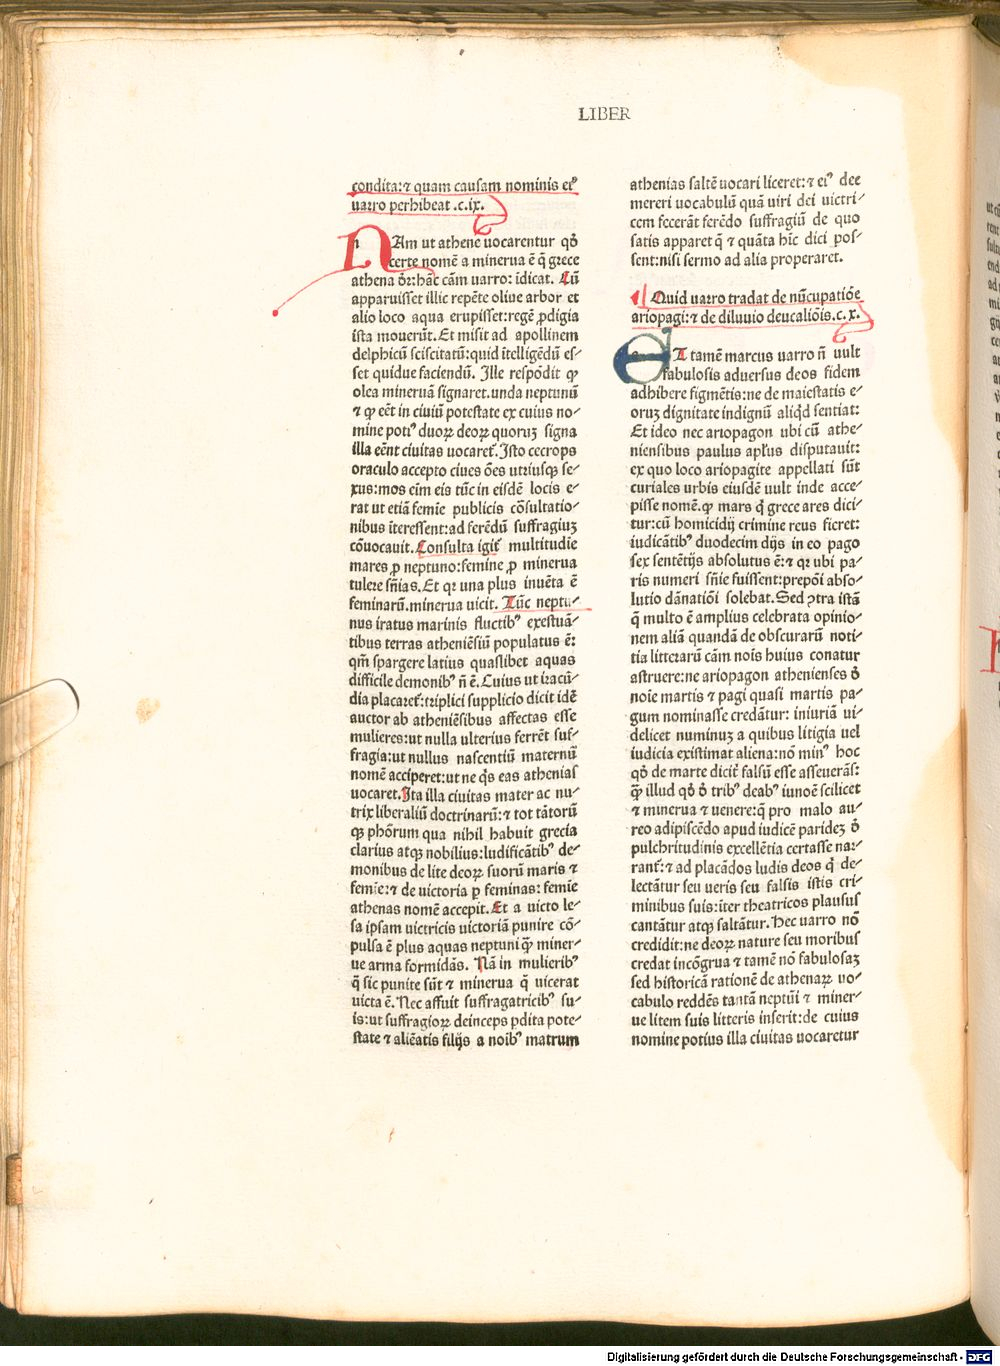 LIBER
condita:⁊ quam causam nominis eiꝰ
uarro perhibeat .c.ix.
nAm ut athene uocarentur qđ
certe nomē a minerua ē q̄ grece
athena đr:hāc cām uarro: īdicat. Cū
apparuisset illic repēte oliue arbor et
alio loco aqua erupisset:regē ꝓdigia
ista mouerūt.Et misit ad apollinem
delphicū sciscitatū:quid ītelligēdū es⸗
set quidue faciendū. Ille respōdit ꝙ
olea mineruā signaret.unda neptunū
⁊ ꝙ eēt in ciuiū potestate ex cuius no⸗
mine potiꝰ duoꝝ deoꝝ quoruꝫ signa
illa eēnt ciuitas uocaret᷑.Isto cecrops
oraculo accepto ciues ōes utriusqꝫ se⸗
xus:mos eīm eis tūc in eisdē locis e⸗
rat ut etiā femīe publicis cōsultatio⸗
nibus īteressent:ad ferēdū suffragiuꝫ
cōuocauit.Consulta igit᷑ multitudīe
mares ꝓ neptuno:femine ꝓ minerua
tulere sn̄ias.Et qꝛ una plus inuēta ē
feminarū.minerua uicit. Tūc neptu⸗
nus iratus marinis fluctibꝰ exestuā⸗
tibus terras atheniēsiū populatus ē:
qm̄ spargere latius quaslibet aquas
difficile demonibꝰ n̄ ē.Cuius ut iracū⸗
dia placaret᷑:triplici supplicio dicit idē
auctor ab atheniēsibus affectas esse
mulieres:ut nulla ulterius ferrēt suf⸗
fragia:ut nullus nascentiū maternū
nomē acciperet:ut ne q̇s eas athenias
uocaret.Ita illa ciuitas mater ac nu⸗
trix liberaliū doctrinarū:⁊ tot tātorū
qꝫ phōrum qua nihil habuit grecia
clarius atqꝫ nobilius:ludificātibꝰ de⸗
monibus de lite deoꝝ suorū maris ⁊
femīe:⁊ de uictoria ꝑ feminas: femīe
athenas nomē accepit.Et a uicto le⸗
sa ipsam uictricis uictoriā punire cō⸗
pulsa ē plus aquas neptuni q̄ꝫ miner⸗
ue arma formidās. Nā in mulieribꝰ
q̄ sic punite sūt ⁊ minerua q̄ uicerat
uicta ē.Nec affuit suffragatricibꝰ su⸗
is:ut suffragioꝝ deinceps ꝑdita pote⸗
state ⁊ aliēatis filijs a noībꝰ matrum
athenias saltē uocari liceret:⁊ eiꝰ dee
mereri uocabulū quā uiri dei uictri⸗
cem fecerāt ferēdo suffragiū de quo
satis apparet q̄ ⁊ quāta hīc dici pos⸗
sent:nisi sermo ad alia properaret.
Quid uarro tradat de nūcupatiōe
ariopagi:⁊ de diluuio deucaliōis.c.x.
eT tamē marcus uarro n̄ uult
fabulosis aduersus deos fidem
adhibere figmētis:ne de maiestatis e⸗
oruꝫ dignitate indignū aliqd sentiat:
Et ideo nec ariopagon ubi cū athe⸗
niensibus paulus apl̄us disputauit:
ex quo loco ariopagite appellati sūt
curiales urbis eiusdē uult inde acce⸗
pisse nomē.ꝙ mars q̇ grece ares dici⸗
tur:cū homicidij crimine reus fieret:
iudicātibꝰ duodecim dijs in eo pago
sex sentētijs absolutus ē:⁊ qꝛ ubi pa⸗
ris numeri sn̄ie fuissent:prepōi abso⸗
lutio dānatiōi solebat.Sed ↄtra istā
q̄ multo ē amplius celebrata opinio⸗
nem aliā quandā de obscurarū noti⸗
tia litterarū cām noīs huius conatur
astruere:ne ariopagon athenienses đ
noīe martis ⁊ pagi quasi martis pa⸗
gum nominasse credātur: iniuriā ui⸗
delicet numinuꝫ a quibus litigia uel
iudicia existimat aliena:nō minꝰ hoc
qđ de marte dicit᷑ falsū esse asseuerās:
q̄ꝫ illud qđ đ tribꝰ deabꝰ iunoē scilicet
⁊ minerua ⁊ uenere:q̄ pro malo au⸗
reo adipiscēdo apud iudicē parideꝫ đ
pulchritudinis excellētia certasse nar⸗
rant᷑:⁊ ad placādos ludis deos q̇ de⸗
lectātur seu ueris seu falsis istis cri⸗
minibus suis:īter theatricos plausus
cantātur atqꝫ saltātur.Hec uarro nō
credidit:ne deoꝝ nature seu moribus
credat incōgrua ⁊ tamē nō fabulosaꝫ
sed historicā rationē de athenaꝝ uo⸗
cabulo reddēs tantā neptūi ⁊ miner⸗
ue litem suis litteris inserit:de cuius
nomine potius illa ciuitas uocaretur
Digitalisierung gefördert durch die Deutsche Forschungsgemeinschaft - DFG